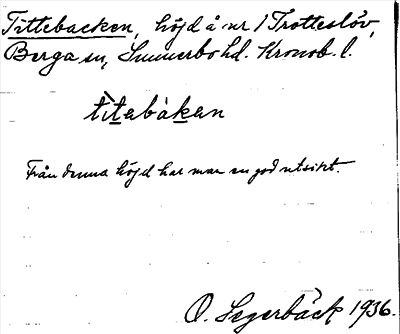 Tittebacken, höjd å nr 1 Trotteslöv,
Berga sn, Sunnerbo hd. Kronob. l.
tìtebàken
Från denna höjd har man en god utsikt.
O. Segerbäck 1936.